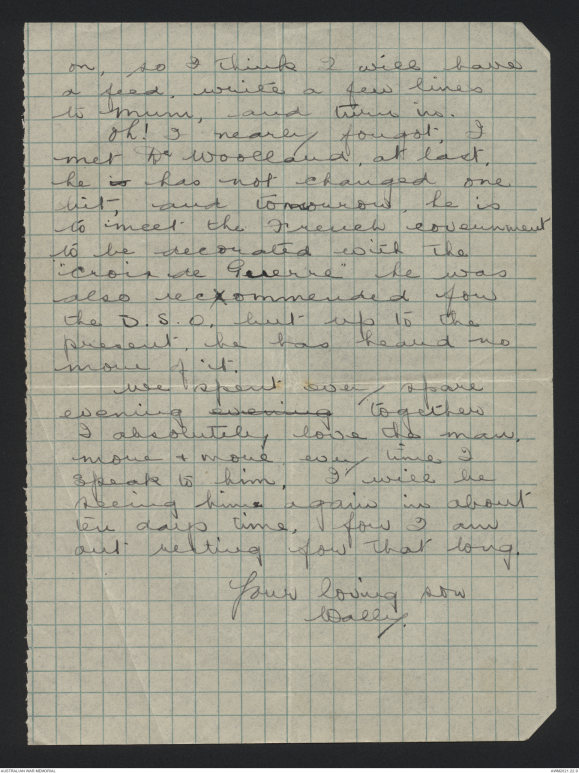 on, so I think I will have
a feed, write a few lines
to Mum, and turn in.
Oh! I nearly forgot, I
met Dr Woolland, at last,
he is has not changed one
bit, and tomorrow, he is
to meet the French government
to be decorated with the
"Crois de Guerre" he was
also recommended for
the D.S.O, but up to the
present, he has heard no
more of it.
We spent every spare
evening evening together
I absolutely love the man,
more + more, every time I
speak to him, I will be
seeing him again in about
ten days time, for I am
out resting for that long.
Your loving son
Wally.
AUSTRALIAN WAR MEMORIAL